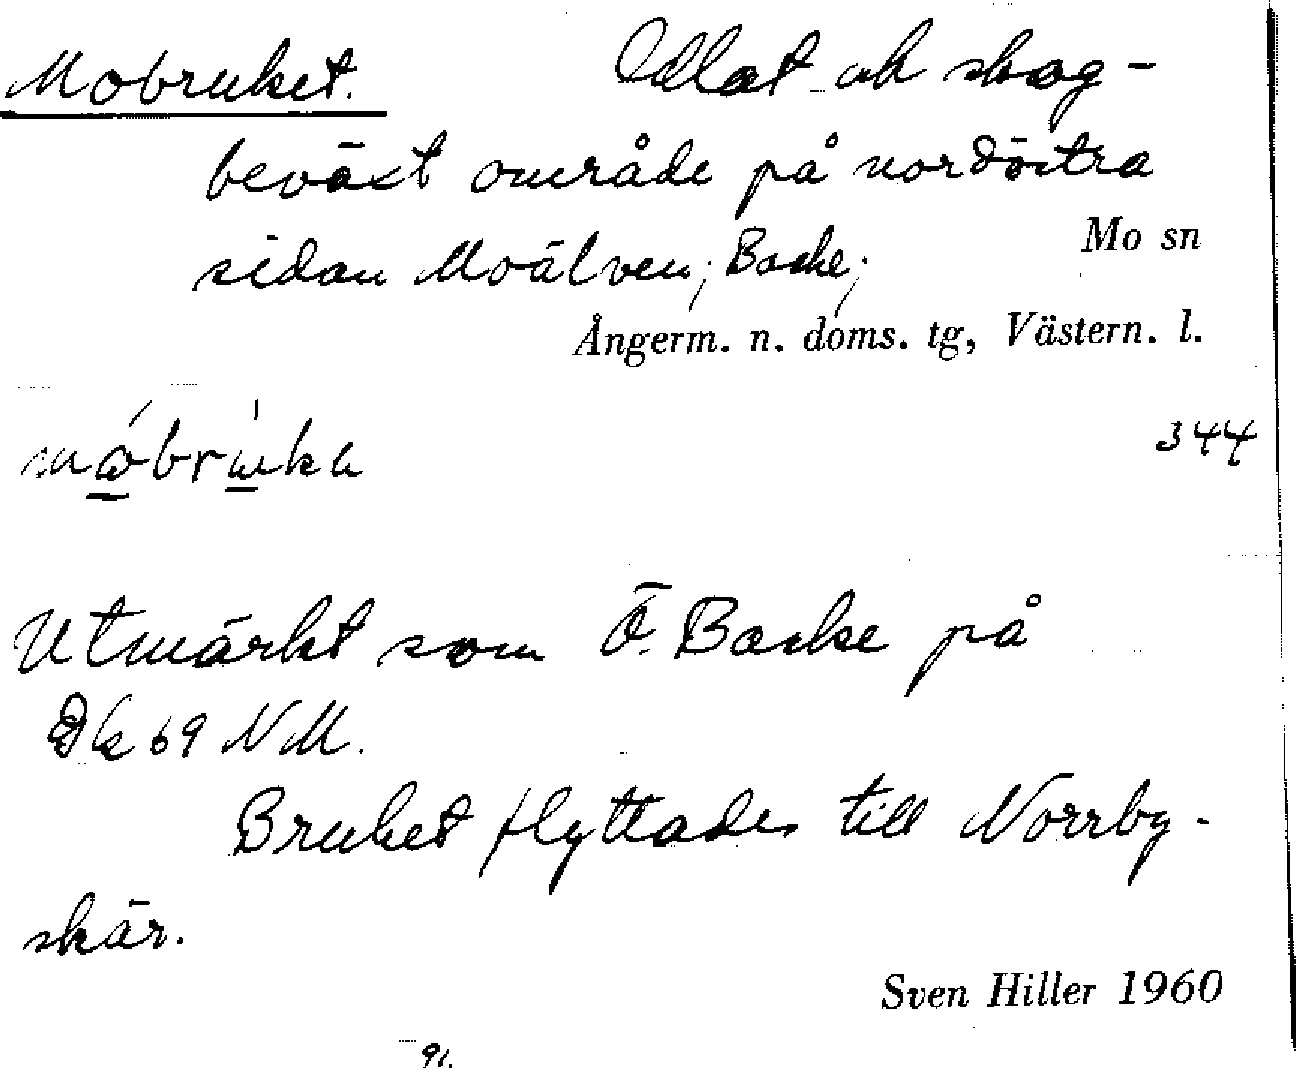 Mobruket. Odlat och skog-
beväxt område på nordöstra
sidan Moälven; Backe;
Mo sn
Ångerm. n. doms. tg, Västern. l.
344
Utmärkt som Ö. Backe på
Dk 69 NM.
Bruket flyttades till Norrby-
skär.
Sven Hiller 1960